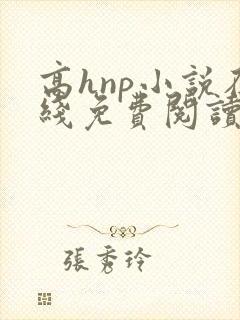 高hnp小說在
綫免費閱讀
張秀玲